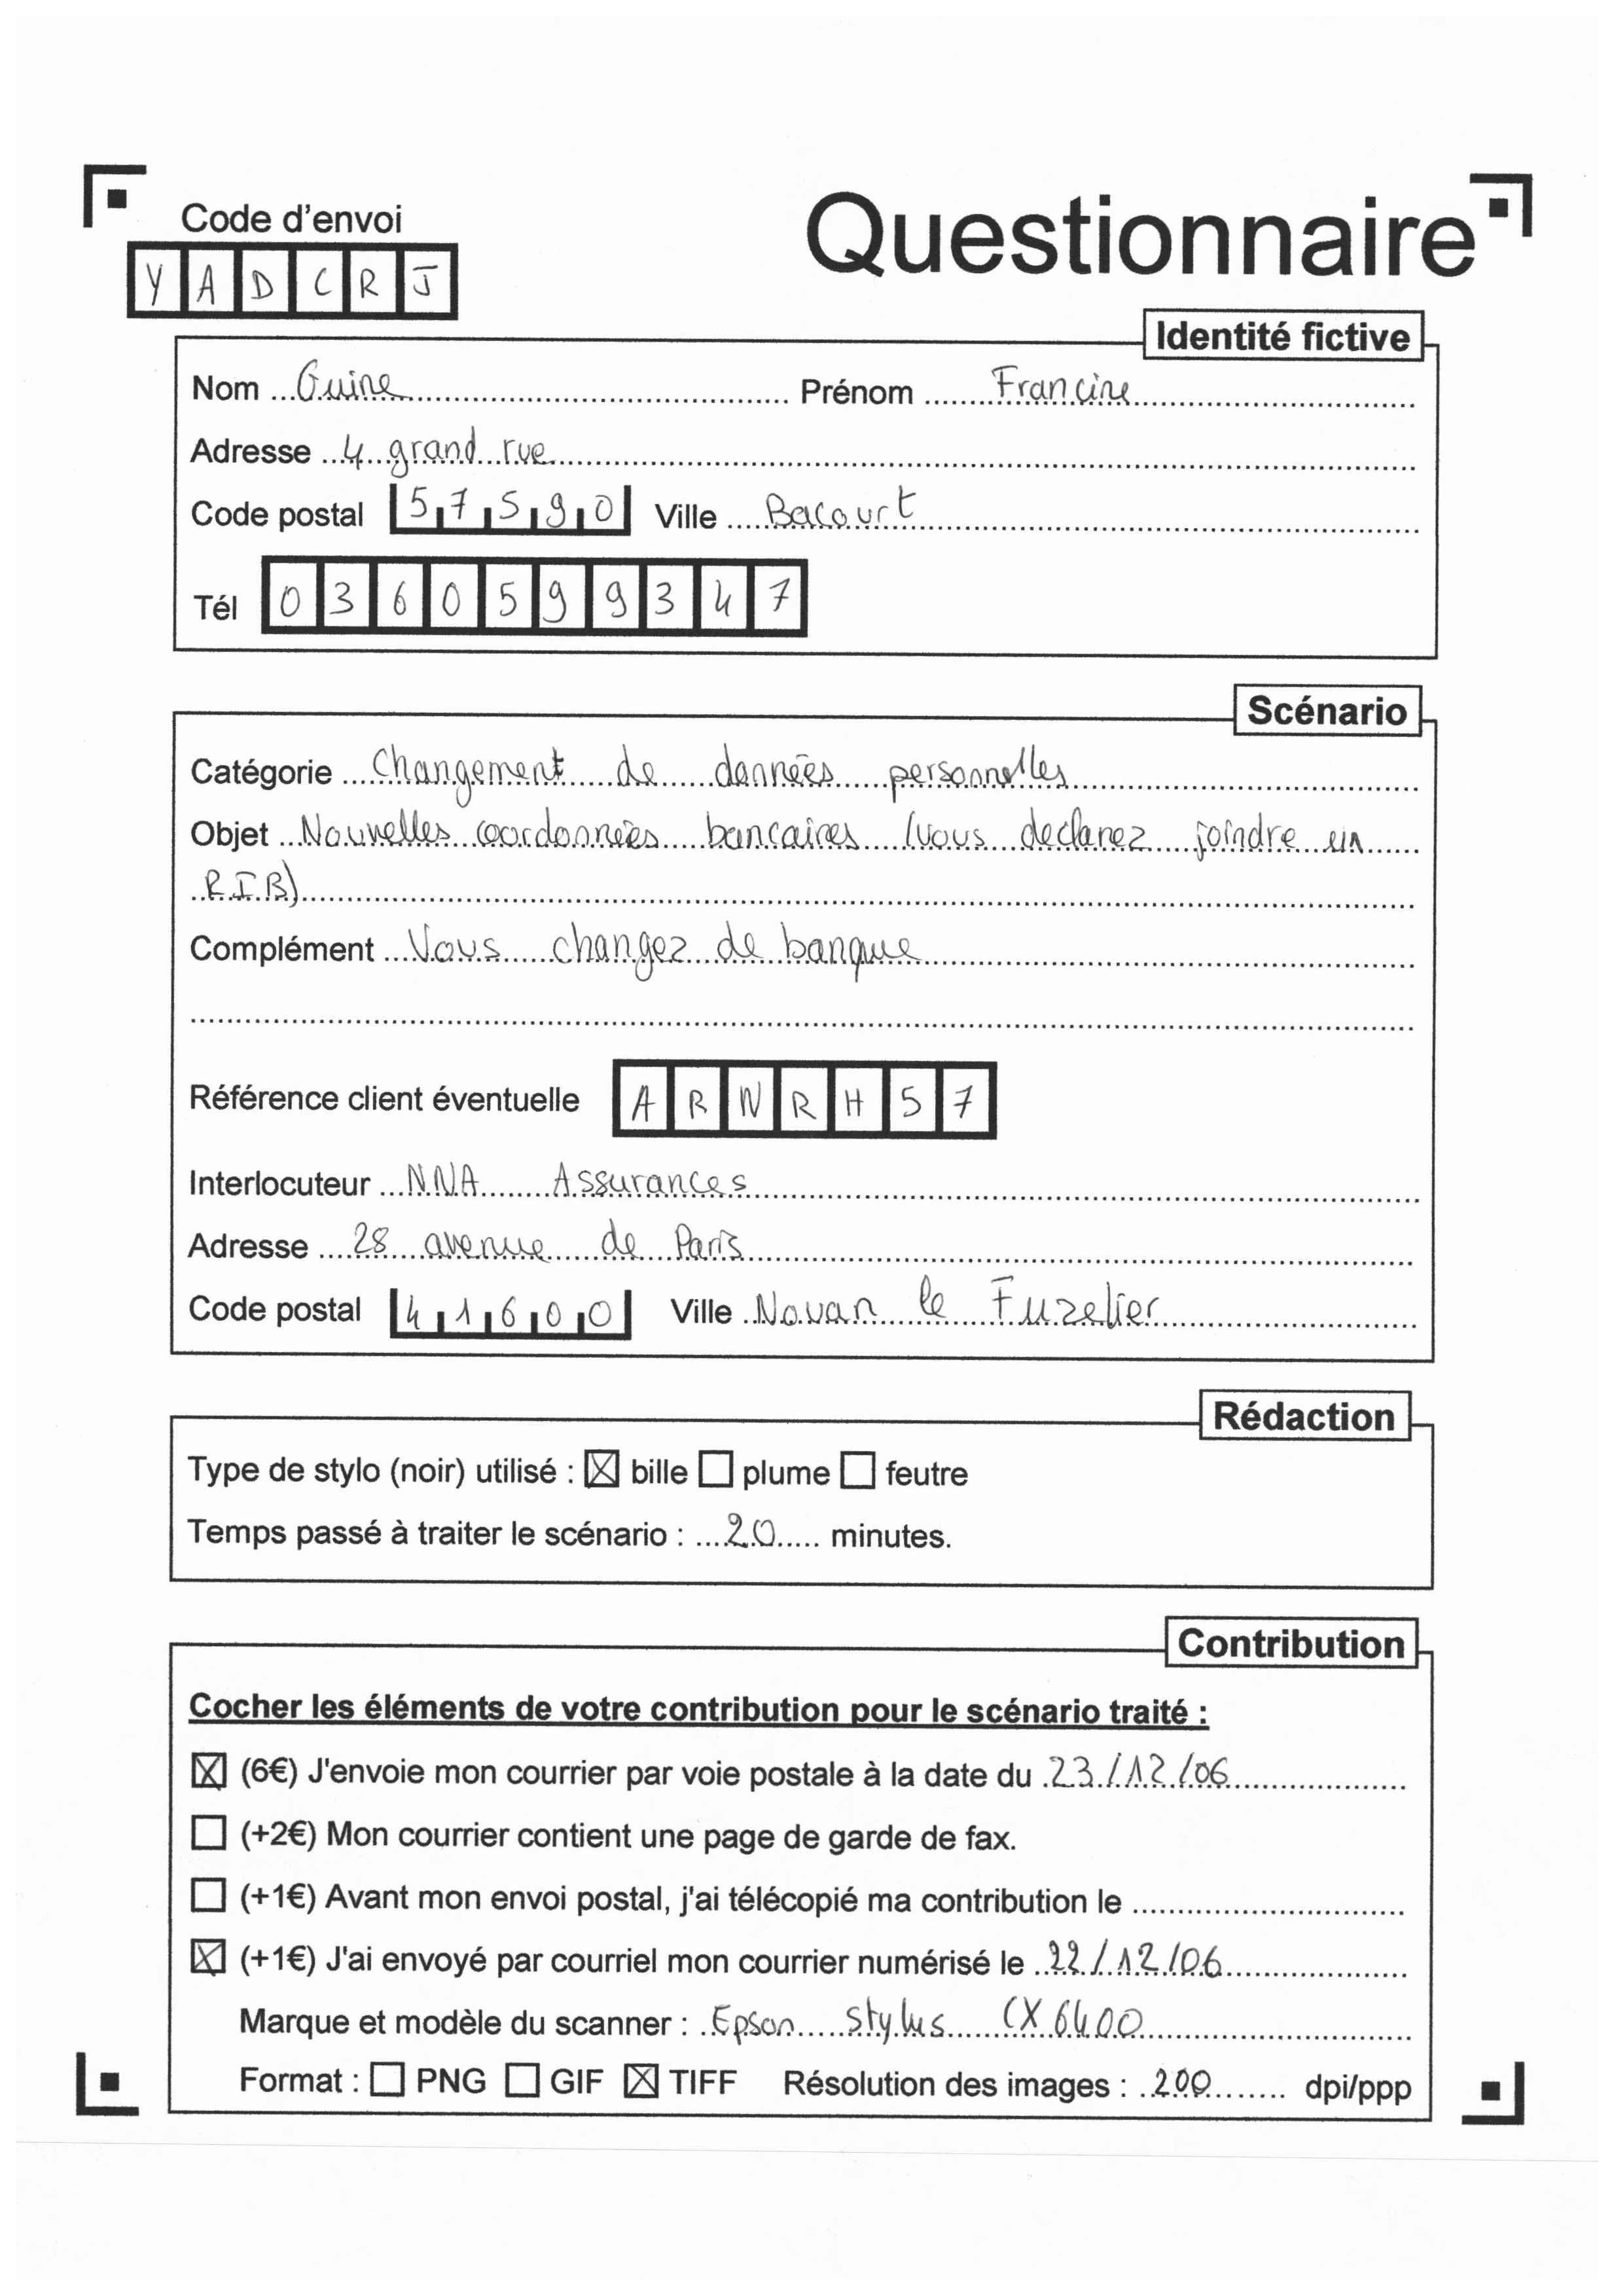 Code d'envoi
Questionnaire
Y A D C R J
Identité fictive
Nom Guine Prénom Francine
Adresse 4 grand rue
Code postal 57590 Ville Bacourt
Tél 0360599347
Scénario
Catégorie Changement de données personnelles
Objet Nouvelles coordonnées bancaires (vous declarez joindre un
RIB)
Complément Vous changez de banque
Référence client éventuelle A R N R H 5 7
Interlocuteur NNA Assurances
Adresse 28 avenue de Paris
Code postal 41600 Ville Nouan le Fuzelier
Rédaction
Type de stylo (noir) utilisé : ☒ bille ☐ plume ☐ feutre
Temps passé à traiter le scénario : 20 minutes.
Contribution
Cocher les éléments de votre contribution pour le scénario traité :
☒ (6€) J'envoie mon courrier par voie postale à la date du 23/12/06
☐ (+2€) Mon courrier contient une page de garde de fax.
☐ (+1€) Avant mon envoi postal, j'ai télécopié ma contribution le
☒ (+1€) J'ai envoyé par courriel mon courrier numérisé le 22/12/06
Marque et modèle du scanner : Epson stylus CX6400
Format : ☐ PNG ☐ GIF ☒ TIFF Résolution des images : 200 dpi/ppp